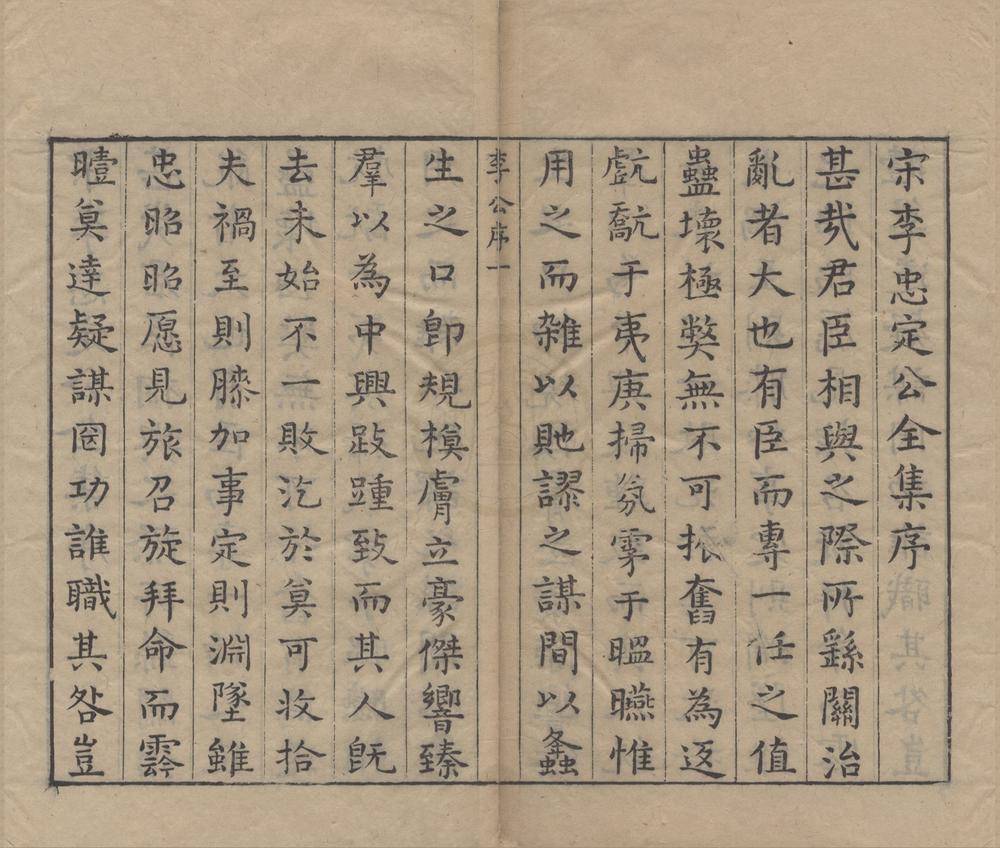 宋李忠定公全集序
甚㢤君臣相與之際所繇關治
亂者大也有臣而專一任之值
蠱壞極獘無不可振奮有為返
戲𣣉于夷庚掃氛霁于䁔曣惟
用之而雜以貤謬之謀間以夆蝨
李公序一
生之口卽規模膚立豪傑響臻
羣以為中興跂踵致而其人旣
去未始不一敗汔於莫可收拾
夫禍至則膝加事定則淵墜雖
忠昭昭愿見旅召旋拜命而霒
曀莫達疑謀罔功誰職其咎豈